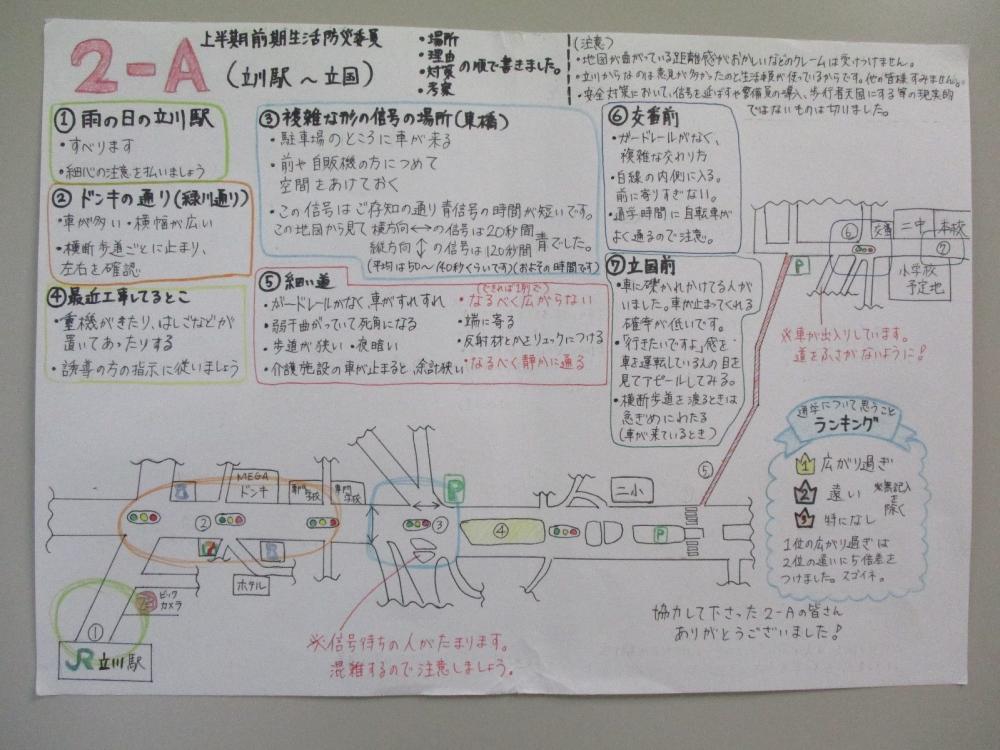 2-A
上半期前期生活防災委員
(立川駅 ~ 立国)
・場所
・理由
・対策
・考察
の順で書きました。
(注意)
・地図が曲がっている距離感がおかしいなどのクレームは受けつけません。
・立川からなのは意見が多かったのと生活委員が使っているからです。他の皆様すみません。
・安全対策において、信号を延ばすや警備員の導入、歩行者天国にする等の現実的
ではないものは切りました。
① 雨の日の立川駅
・すべります
・細心の注意を払いましょう
② ドンキの通り(緑川通り)
・車が多い・横幅が広い
・横断歩道ごとに止まり、
左右を確認
④ 最近工事してるとこ
・重機がきたり、はしごなどが
置いてあったりする
・誘導の方の指示に従いましょう
③ 複雑な形の信号の場所(東橋)
・駐車場のところに車が来る
・前や自販機の方につめて
空間をあけておく
・この信号はご存知の通り青信号の時間が短いです。
この地図から見て横方向↔の信号は20秒間
縦方向↕の信号は120秒間
青でした。
(平均は50~140秒くらいです)(およその時間です)
⑤ 細い道
・ガードレールがなく、車がすれすれ
・若干曲がっていて死角になる
・歩道が狭い・夜暗い
・介護施設の車が止まると、余計狭い
(できれば1列で)
・なるべく広がらない
・端に寄る
・反射材とかをリュックにつける
・なるべく静かに通る
⑥ 交番前
・ガードレールがなく、
複雑な交わり方
・白線の内側に入る。
前に寄りすぎない。
・通学時間に自転車が
よく通るので注意。
⑦ 立国前
・車に礫かれかけてる人が
いました。車が止まってくれる
確率が低いです。
・「行きたいですよ」感を
車を運転している人の目を
見てアピールしてみる。
・横断歩道を渡るときは
急ぎめにわたる
(車が来ているとき)
⑥
交番
二中
本校
⑦
P
小学校
予定地
※車が出入りしています。
道をふさがないように!
通学について思うこと
ランキング
1 広がり過ぎ
2 遠い
3 特になし
※無記入
を
除く
1位の広がり過ぎは
2位の遠いに5倍差を
つけました。スゴイネ。
⑤
MEGA
ドンキ
専門
学校
専門
学校
P
二小
②
③
④
P
ホテル
ビック
カメラ
①
JR 立川駅
※信号待ちの人がたまります。
混雑するので注意しましょう。
協力して下さった2-Aの皆さん
ありがとうございました!